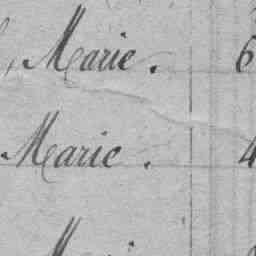 Marie. 6
Marie. 4